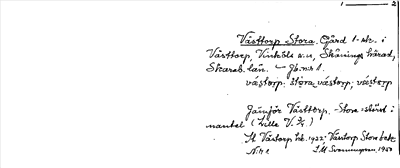 1 — 2
Västtorp Stora. Gård 1 sk. i
Västtorp, Vinköls sn, Skånings härad,
Skarab. län. — Jb. nr 1.
västorp, stora västorp; västorp
Jämför Västtorp. Stora störst i
mantel (Lilla V. 3/4)
St Västorp 1922: Västorp Stora
Nr 1 S.M. Svenningson, 1950